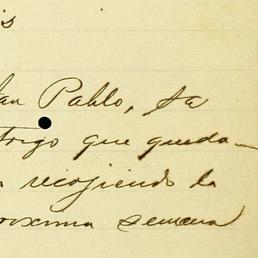 is
San Pablo, ya
trigo que queda-
recojiendo la
proxima semana